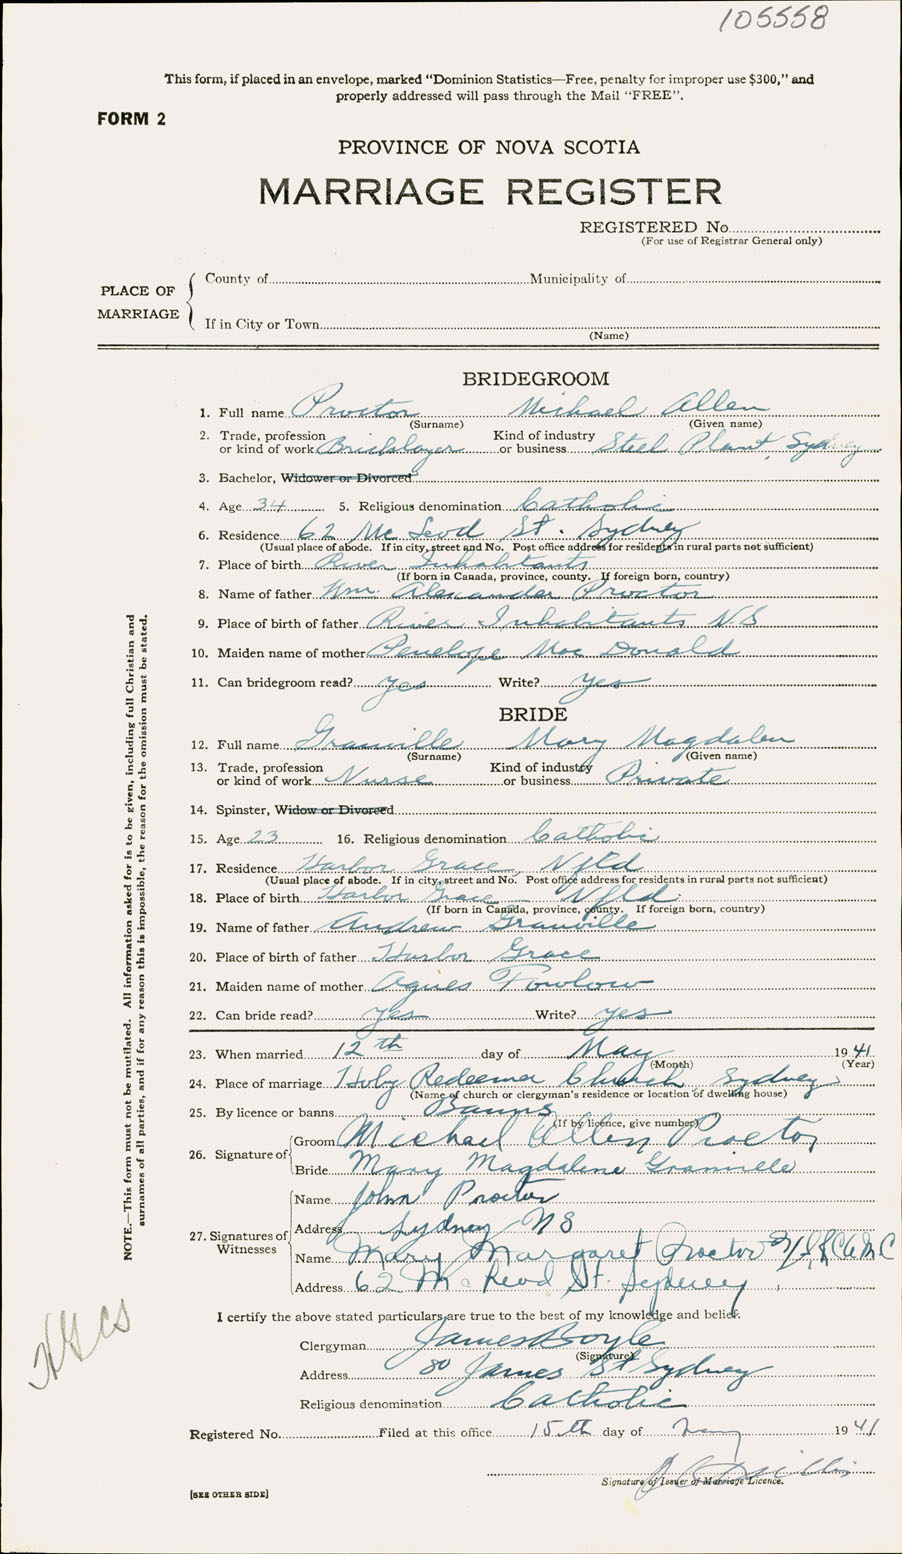 105558
This form, if placed in an envelope, marked “Dominion Statistics—Free, penalty for improper use $300,” and
properly addressed will pass through the Mail “FREE”.
FORM 2
PROVINCE OF NOVA SCOTIA
MARRIAGE REGISTER
REGISTERED No.
(For use of Registrar General only)
PLACE OF MARRIAGE
County of Municipality of
If in City or Town
(Name)
BRIDEGROOM
1. Full name Proctor Michael Allen
(Surname) (Given name)
2. Trade, profession or kind of work Bricklayer Kind of industry or business Steel Plant, Sydney
3. Bachelor, Widower or Divorced
4. Age 34 5. Religious denomination Catholic
6. Residence 62 McLeod St. Sydney
(Usual place of abode. If in city, street and No. Post office address for residents in rural parts not sufficient)
7. Place of birth River Inhabitants
(If born in Canada, province, county. If foreign born, country)
8. Name of father Wm. Alexander Proctor
9. Place of birth of father River Inhabitants N.S
10. Maiden name of mother Penelope Mac Donald
11. Can bridegroom read? yes Write? yes
BRIDE
12. Full name Granville Mary Magdalen
(Surname) (Given name)
13. Trade, profession or kind of work Nurse Kind of industry or business Private
14. Spinster, Widow or Divorced
15. Age 23 16. Religious denomination Catholic
17. Residence Harbor Grace, Nfld
(Usual place of abode. If in city, street and No. Post office address for residents in rural parts not sufficient)
18. Place of birth Harbor Grace Nfld.
(If born in Canada, province, county. If foreign born, country)
19. Name of father Andrew Granville
20. Place of birth of father Harbor Grace
21. Maiden name of mother Agnes Fowlow
22. Can bride read? yes Write? yes
23. When married 12th day of May 1941
(Month) (Year)
24. Place of marriage Holy Redeemer Church, Sydney
(Name of church or clergyman's residence or location of dwelling house)
25. By licence or banns Banns
(If by licence, give number)
26. Signature of
Groom Michael Allen Proctor
Bride Mary Magdalene Granville
27. Signatures of Witnesses
Name John Proctor
Address Sydney NS
Name Mary Margaret Proctor
Address 62 McLeod St. Sydney
I certify the above stated particulars are true to the best of my knowledge and belief.
Clergyman James Boyle
(Signature)
Address 80 James St Sydney
Religious denomination Catholic
Registered No. Filed at this office 15th day of May 1941
Signature of Issuer of Marriage Licence.
[SEE OTHER SIDE]
NOTE.—This form must not be mutilated. All information asked for is to be given, including full Christian and
surnames of all parties, and if for any reason this is impossible, the reason for the omission must be stated.